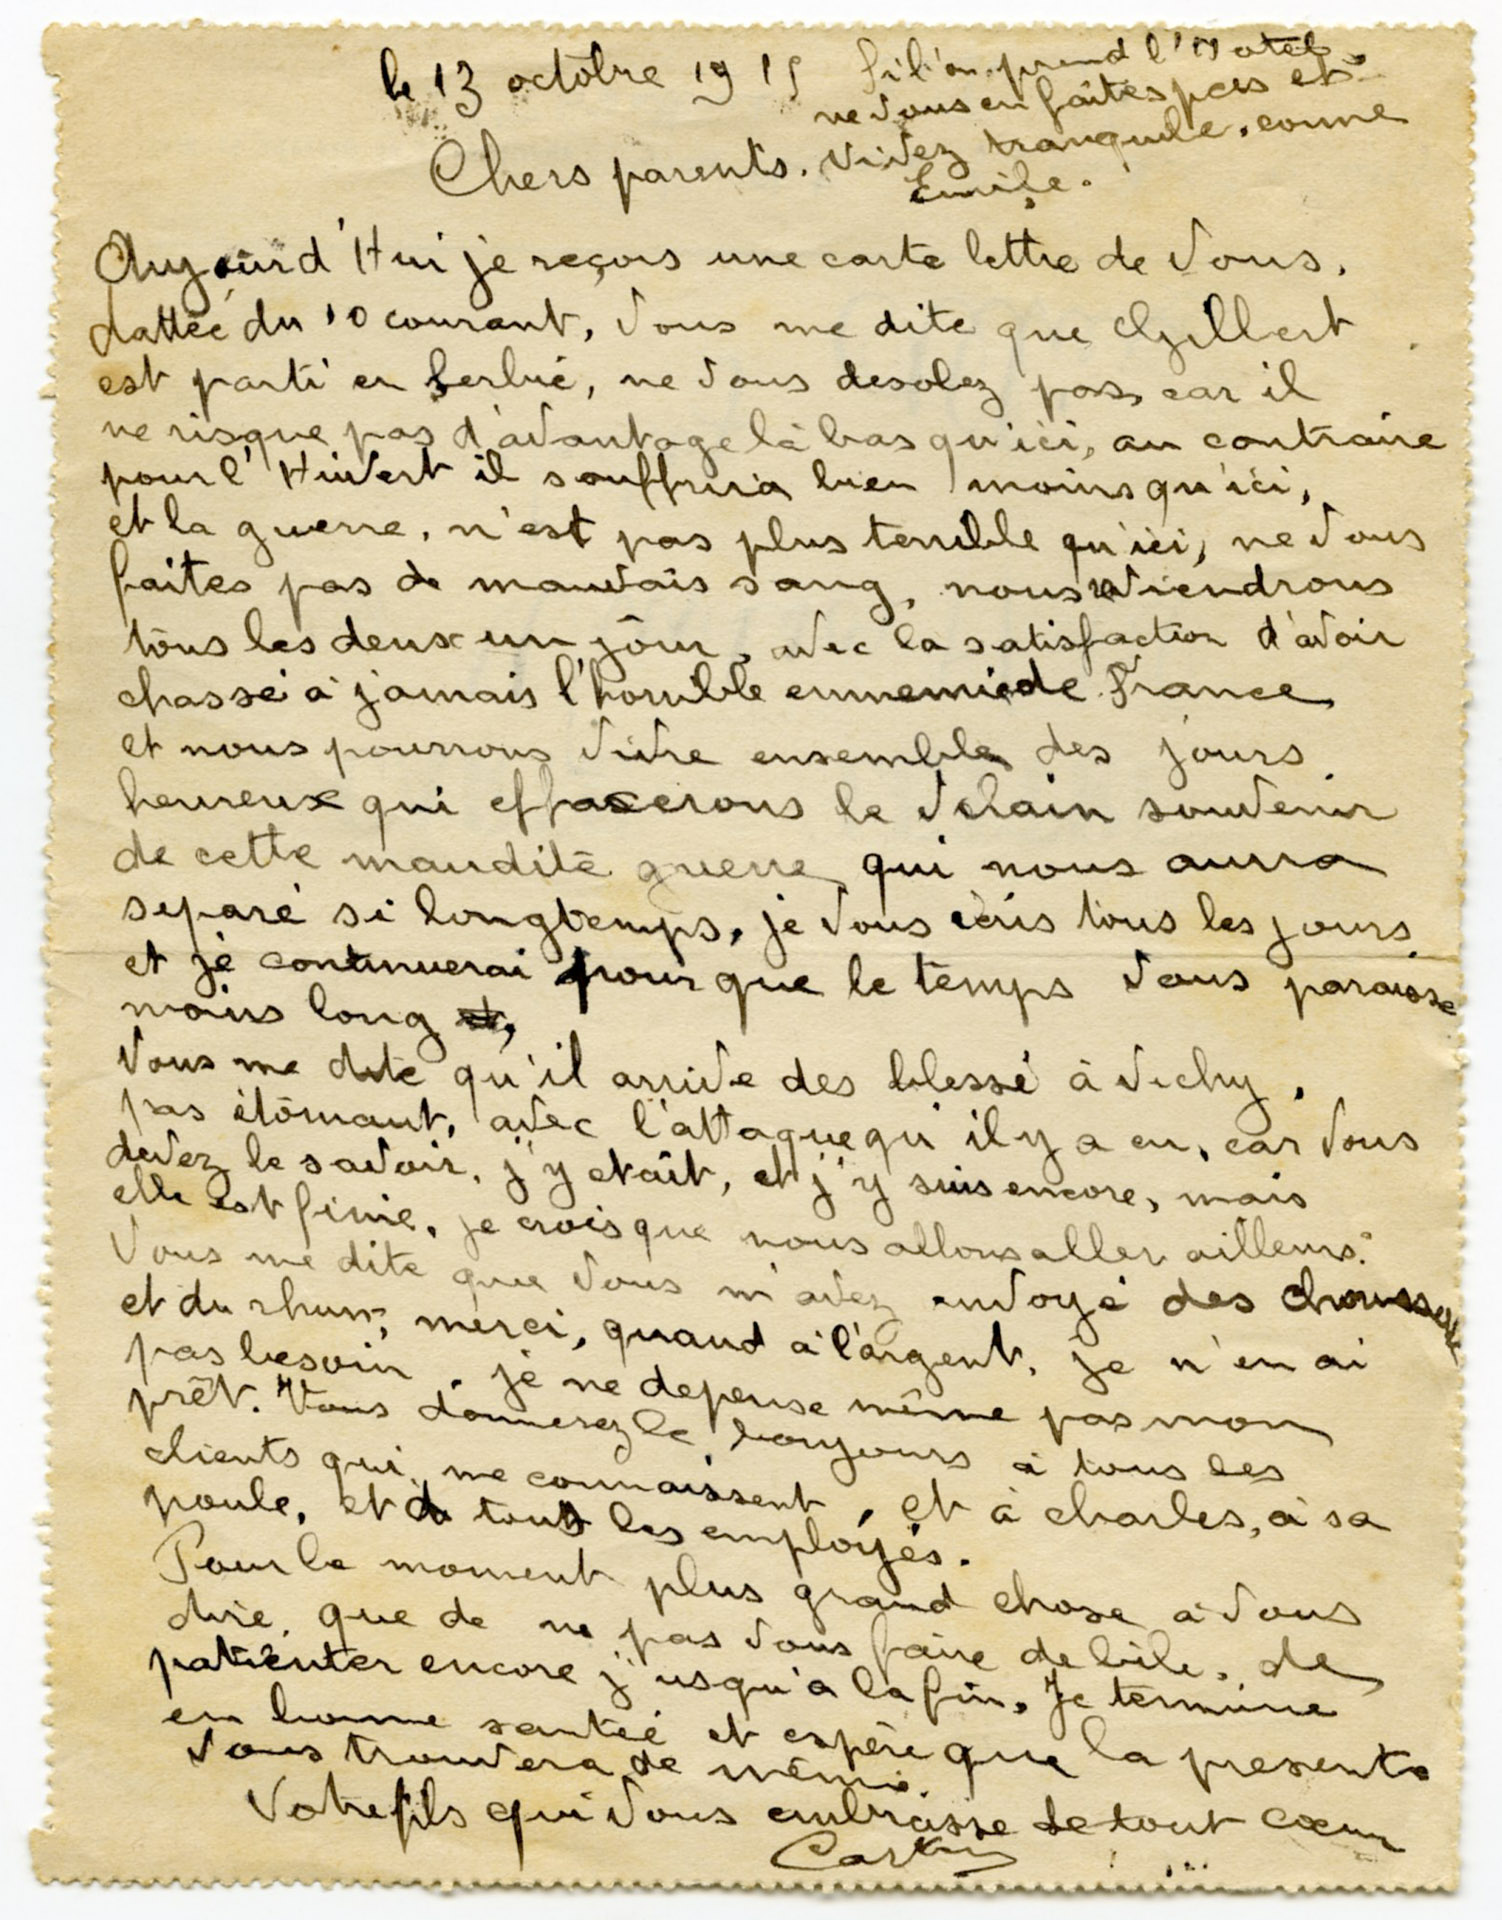 le 13 octobre 1915
si l'on prend l'Hotel
ne vous en faites pas et
vivez tranquile, comme
Emile.
Chers parents.
Aujourd'Hui je reçois une carte lettre de vous,
dattée du 10 courant, vous me dite que Gillbert
est parti en Serbie, ne vous desolez pas, car il
ne risque pas d'avantage là bas qu'ici, au contraire
pour l'Hivert il souffrira bien moins qu'ici,
et la guerre, n'est pas plus terrible qu'ici, ne vous
faites pas de mauvais sang, nous reviendrons
tous les deux un jour, avec la satisfaction d'avoir
chassé à jamais l'horrible ennemie de France
et nous pourrons vivre ensembles des jours
heureux qui effacerons le vilain souvenir
de cette maudite guerre qui nous aurra
separé si longtemps, je vous écris tous les jours
et je continuerai pour que le temps vous paraisse
moins long et,
Vous me dite qu'il arrive des blessé à Vichy,
pas étonnant, avec l'attaque qu'il y a eu, car vous
devez le savoir, j'y etait, et j'y suis encore, mais
elle est finie, je crois que nous allons aller ailleurs.
Vous me dite que vous m'avez envoyé des
et du rhum, merci, quand à l'argent, je n'en ai
pas besoin, je ne depense même pas mon
prêt. Vous donnerez le bonjours à tous les
clients qui me connaissent, et à charles, à sa
poule, et à tous les employés.
Pour le moment plus grand chose à vous
dire, que de ne pas vous faire de bile, de
patienter encore j'usqu'à la fin, Je termine
en bonne santée et espère que la presente
vous trouvera de même.
Votre fils qui vous embrasse de tout cœur